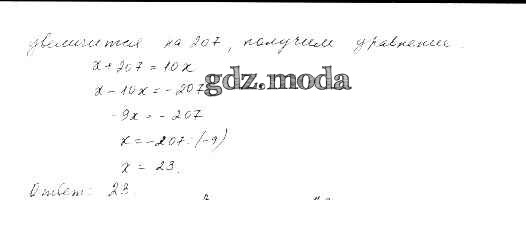 увеличится на 207, получим уравнение.
x + 207 = 10x
x - 10x = -207
gdz.moda
-9x = -207
x = -207 : (-9)
x = 23.
Ответ: 23.